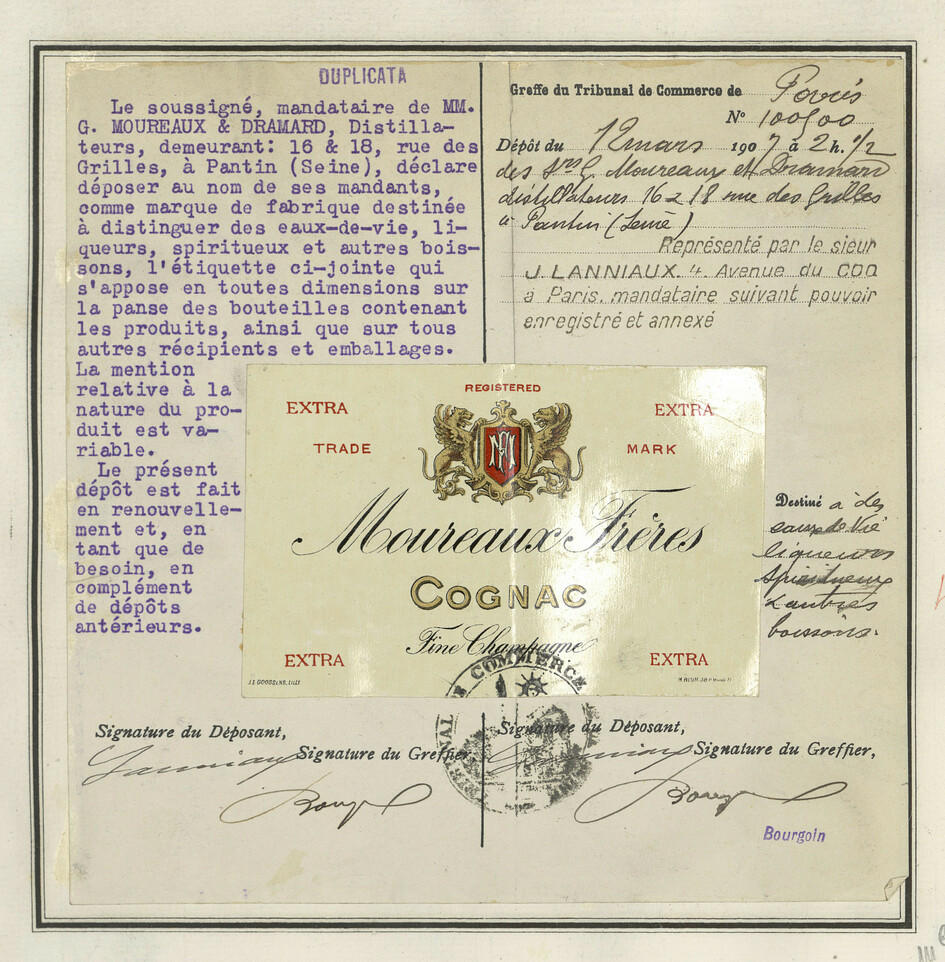 DUPLICATA
Le soussigné, mandataire de MM.
G. MOUREAUX & DRAMARD, Distilla-
teurs, demeurant: 16 & 18, rue des
Grilles, à Pantin (Seine), déclare
déposer au nom de ses mandants,
comme marque de fabrique destinée
à distinguer des eaux-de-vie, li-
queurs, spiritueux et autres bois-
sons, l'étiquette ci-jointe qui
s'appose en toutes dimensions sur
la panse des bouteilles contenant
les produits, ainsi que sur tous
autres récipients et emballages.
La mention
relative à la
nature du pro-
duit est va-
riable.
Le présent
dépôt est fait
en renouvelle-
ment et, en
tant que de
besoin, en
complément
de dépôts
antérieurs.
Greffe du Tribunal de Commerce de Paris
N° 100500
Dépôt du 12 mars 1907 à 2 h. 1/2
des Srs G. Moureaux et Dramard
distillateurs 16 & 18 rue des Grilles
à Pantin (Seine)
Représenté par le sieur
J. LANNIAUX. 4. Avenue du COQ
à Paris, mandataire suivant pouvoir
enregistré et annexé
REGISTERED
EXTRA EXTRA
TRADE MARK
Moureaux Frères
COGNAC
Fine Champagne
EXTRA EXTRA
Destiné à des
eaux de Vie
liqueurs
spiritueux
& autres
boissons.
COMMERCE
Signature du Déposant,
Lanniaux
Signature du Greffier,
Signature du Déposant,
Lanniaux
Signature du Greffier,
Bourgoin